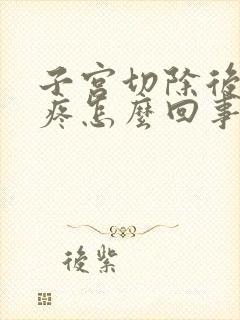 子宮切除後
疼怎麼回事
後紫